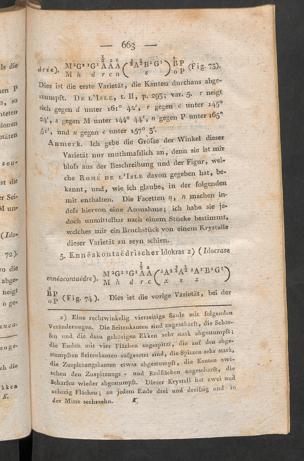 — 663 —
drée). M¹G²³G¹ A A A (
M h d r c n
P
o P (Fig. 73).
Dies ist die erste Varietät, die Kanten durchaus abge-
stumpft. DE L'ISLE, t. II, p. 293; var. 5. r neigt
sich gegen d unter 161° 42', r gegen c unter 145°
24', s gegen M unter 144° 44', n gegen P unter 165°
n gegen c unter 157° 3'.
Anmerk. Ich gebe die Größe der Winkel dieser
Varietät nur muthmaßlich an, denn sie ist mir
bloß aus der Beschreibung und der Figur, wel-
che ROMÉ DE L'ISLE davon gegeben hat, be-
kannt, und, wie ich glaube, in der folgenden
mit enthalten. Die Facetten n, n machen in-
deß hiervon eine Ausnahme; ich habe sie je-
doch unmittelbar nach einem Stücke bestimmt,
welches mir ein Bruchstück von einem Krystalle
dieser Varietät zu seyn schien.
5. Ennéakontaëdrischer Idokras 2) (Idocrase
ennéacontaèdre).
M h d r c
P
o P (Fig. 74). Dies ist die vorige Varietät, bei der
2) Eine rechtwinkelig vierseitige Säule mit folgenden
Veränderungen. Die Seitenkanten sind zugeschärft, die Schär-
fen und die dazu gehörigen Ekken sehr stark abgestumpft;
die Enden mit vier Flächen zugespitzt, die auf den abge-
stumpften Seitenkanten aufgesetzt sind, die Spitzen sehr stark,
die Zuspitzungskanten etwas abgestumpft, die Kanten zwi-
schen den Zuspitzungs- und Endflächen zugeschärft, die
Schärfen wieder abgestumpft. Dieser Krystall hat zwei und
neunzig Flächen; an jedem Ende drei und dreißig und in
der Mitte sechszehn. K.